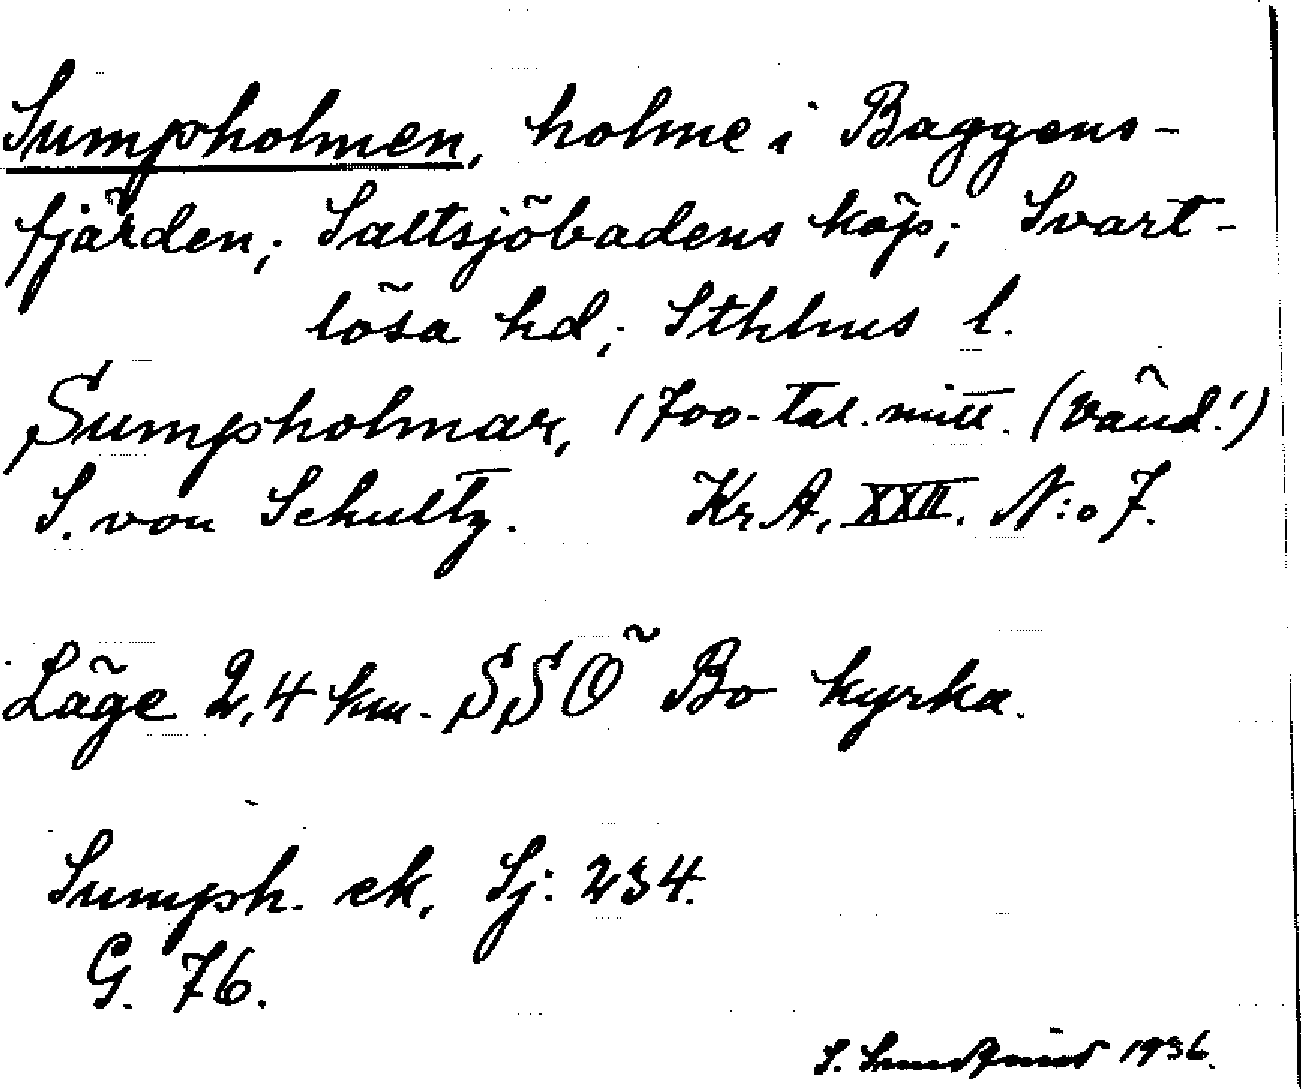 Sumpholmen, holme i Baggens-
fjärden; Saltsjöbadens köp; Svart-
lösa hd; Sthlms l.
Sumpholmar, 1700-tal. mitt. (Vänd!)
S. von Schultz. Kr A. XXII. N:o 7.
Läge 2,4 km. SSÖ Bo kyrka.
Sumph. ek, Sj: 234.
G. 76.
S. 1936.